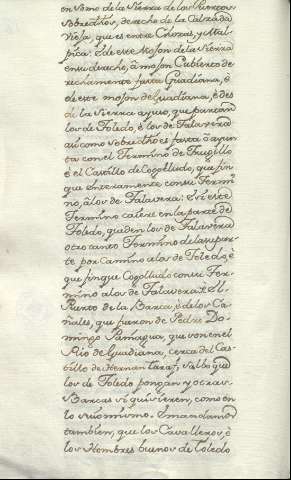 en somo de la Sierra de los Puercos
sobredhos, derecho de la Calzada
Vieja, que es entre Chozas, y Mal-
pica: è de este Mojon de la Sierra
en su derecho, à mojon Cubierto de-
rechamente fasta Guadiana, è
de este mojon de Guadiana, è des
de la Sierra ayuso, que partan
los de Toledo, è los de Talavera
asi como sobredho es fasta ò ayun-
ta con el Termino de Trugillo
è el Castillo de Cogolludo, que fin-
que enteramente con su Termi-
no, à los de Talavera: è si este
Termino caiere en la parte de
Toledo, que den los de Talavera
otro tanto Termino de la su par-
te por camino à los de Toledo, è
que finque Cogolludo con su Ter-
mino à los de Talavera: è El
Puerto de la Barca, è de los Ca-
ñales, que fueron de Pedro Do-
mingo Pamagua, que son en el
Rio de Guadiana, cerca del Cas-
tillo de Hernan taraf, vallo que
los de Toledo pongan y otras
Barcas si quisieren, como en
lo suo mismo. È mandamos
tambien, que los Cavalleros è
los Hombres buenos de Toledo